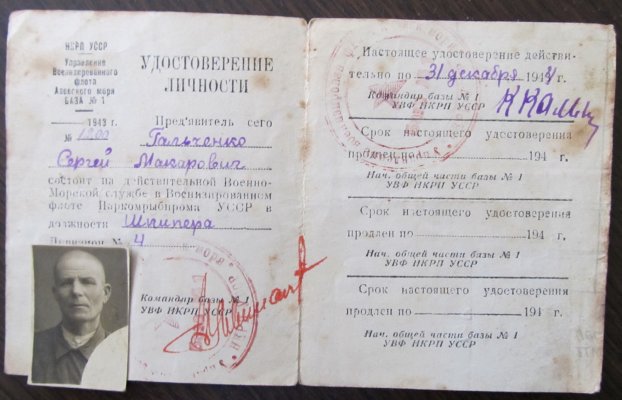 НКРП УССР
Управление
Военизированного
флота
Азовского моря
БАЗА № 1
УДОСТОВЕРЕНИЕ
ЛИЧНОСТИ
1943 г.
№ 1200
Пред'явитель сего
Гальченко
Сергей Макарович
состоит на действительной Военно-
Морской службе в Военизированном
флоте Наркомрыбпрома УССР в
должности Шкипера
Дивизион № 4
Командир базы № 1
УВФ НКРП УССР
Настоящее удостоверение действи-
тельно по 31 декабря 194 г.
Командир базы № 1
УВФ НКРП УССР
Срок настоящего удостоверения
продлен по 194 г.
Нач. общей части базы № 1
УВФ НКРП УССР
Срок настоящего удостоверения
продлен по 194 г.
Нач. общей части базы № 1
УВФ НКРП УССР
Срок настоящего удостоверения
продлен по 194 г.
Нач. общей части базы № 1
УВФ НКРП УССР